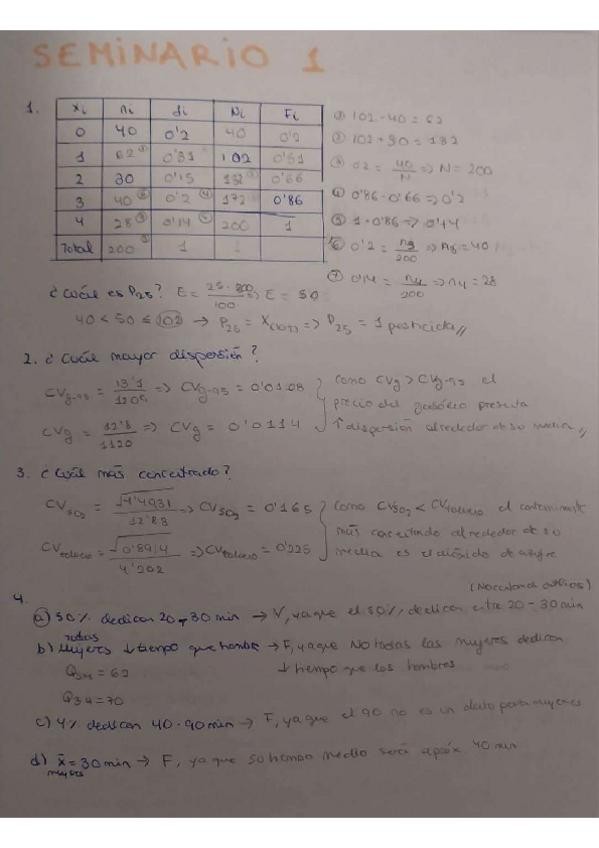 SEMINARIO 1
1.
xi ni fi Ni Fi
0 40 0'2 40 0'2
1 62 0'31 102 0'51
2 30 0'15 132 0'66
3 40 0'2 172 0'86
4 28 0'14 200 1
Total 200 1
① 102-40 = 62
② 102+30 = 132
③ 02 = 40/N => N = 200
④ 0'86-0'66 => 0'2
⑤ 1-0'86 => 0'14
⑥ 0'2 = n3/200 => n3 = 40
⑦ 0'14 = n4/200 => n4 = 28
¿Cuál es P25? E = 25·200/100 => E = 50
40 < 50 ≤ 102 → P25 = X(102) => P25 = 1 pesticida //
2. ¿Cuál mayor dispersión?
CVg-95 = 13'1/ => CVg-95 = 0'0108
CVg = 12'8/1120 => CVg = 0'0114
como CVg > CVg-95 el
precio del gasóleo presenta
↑ dispersión alrededor de su media //
3. ¿Cuál más concentrado?
CV SO2 = √4'4931/12'88 => CV SO2 = 0'165
CV tolueno = √0'8914/4'202 => CV tolueno = 0'225
como CVSO2 < CVtolueno el contaminante
más concentrado alrededor de su
media es el dióxido de azufre
4.
a) 50% dedican 20-30 min → V, ya que el 50% dedican entre 20-30 min
todas
b) Mujeres ↓ tiempo que hombre → F, ya que NO todas las mujeres dedican
↓ tiempo que los hombres
= 62
= 70
c) 4% dedican 40-90 min → F, ya que el 90 no es un dato para mujeres
d) x̄ = 30 min → F, ya que su tiempo medio será aprox 40 min
mujeres